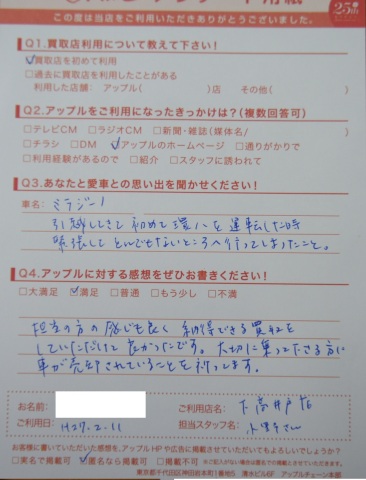 この度は当店をご利用いただきありがとうございました。
25th
Q1.買取店利用について教えて下さい!
☑買取店を初めて利用
□過去に買取店を利用したことがある
利用した店舗: アップル( )店 その他( )
Q2.アップルをご利用になったきっかけは?(複数回答可)
□テレビCM □ラジオCM □新聞・雑誌(媒体名/ )
□チラシ □DM ☑アップルのホームページ □通りがかりで
□利用経験があるので □紹介 □スタッフに誘われて
Q3.あなたと愛車との思い出を聞かせください!
車名: ミラジーノ
引越ししてきて初めて環八を運転した時
緊張してとんでもないところへ行ってしまったこと。
Q4.アップルに対する感想をぜひお書きください!
□大満足 ☑満足 □普通 □もう少し □不満
担当の方の感じも良く納得できる買取を
していただけて良かったです。大切に乗って下さる方に
車が売却されていることを祈ってます。
お名前:
ご利用店名: 下高井戸店
ご利用日: H27.2.11
担当スタッフ名: さん
お客様に書いていただいた感想を、アップルHPや広告に掲載させていただいてもよろしいでしょうか?
□実名で掲載可 ☑匿名なら掲載可 □掲載不可 ※ご記入がない場合は匿名での掲載とさせていただきます。
東京都千代田区神田岩本町1番地5 清水ビル6F アップルチェーン本部